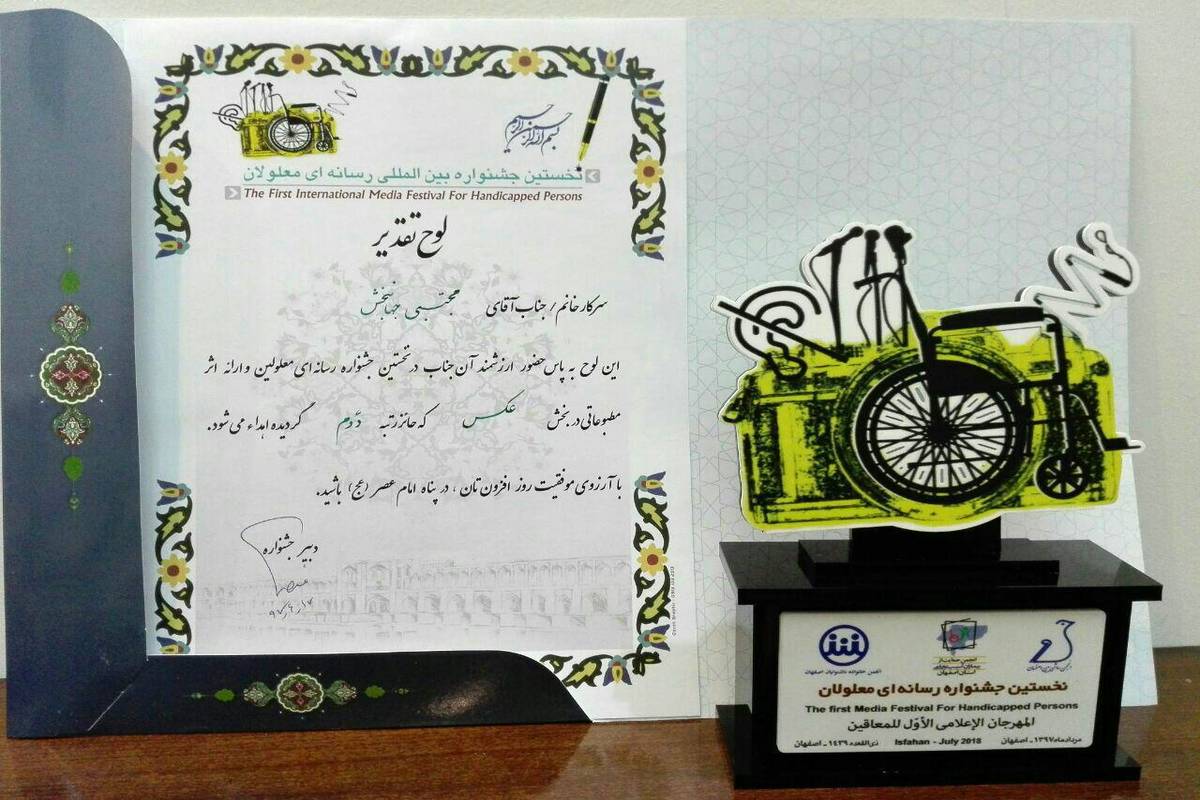 بسم الله الرحمن الرحیم
نخستین جشنواره بین المللی رسانه ای معلولان
The First International Media Festival For Handicapped Persons
لوح تقدیر
سرکار خانم / جناب آقای مجتبی جهانبخش
این لوح به پاس حضور ارزشمند آن جناب در نخستین جشنواره رسانه ای معلولین و ارائه اثر
مطبوعاتی در بخش عکس که حائز رتبه دوم گردیده اهداء می شود.
با آرزوی موفقیت روز افزون تان ، در پناه امام عصر (عج) باشید.
دبیر جشنواره
انجمن خانواده ناشنوایان اصفهان
انجمن حمایت از
استان اصفهان
نخستین جشنواره رسانه ای معلولان
The first Media Festival For Handicapped Persons
المهرجان الإعلامی الأوّل للمعاقین
مردادماه ۱۳۹۷ ـ اصفهان
Isfahan - July 2018
ذی القعده ۱۴۳۹ ـ اصفهان